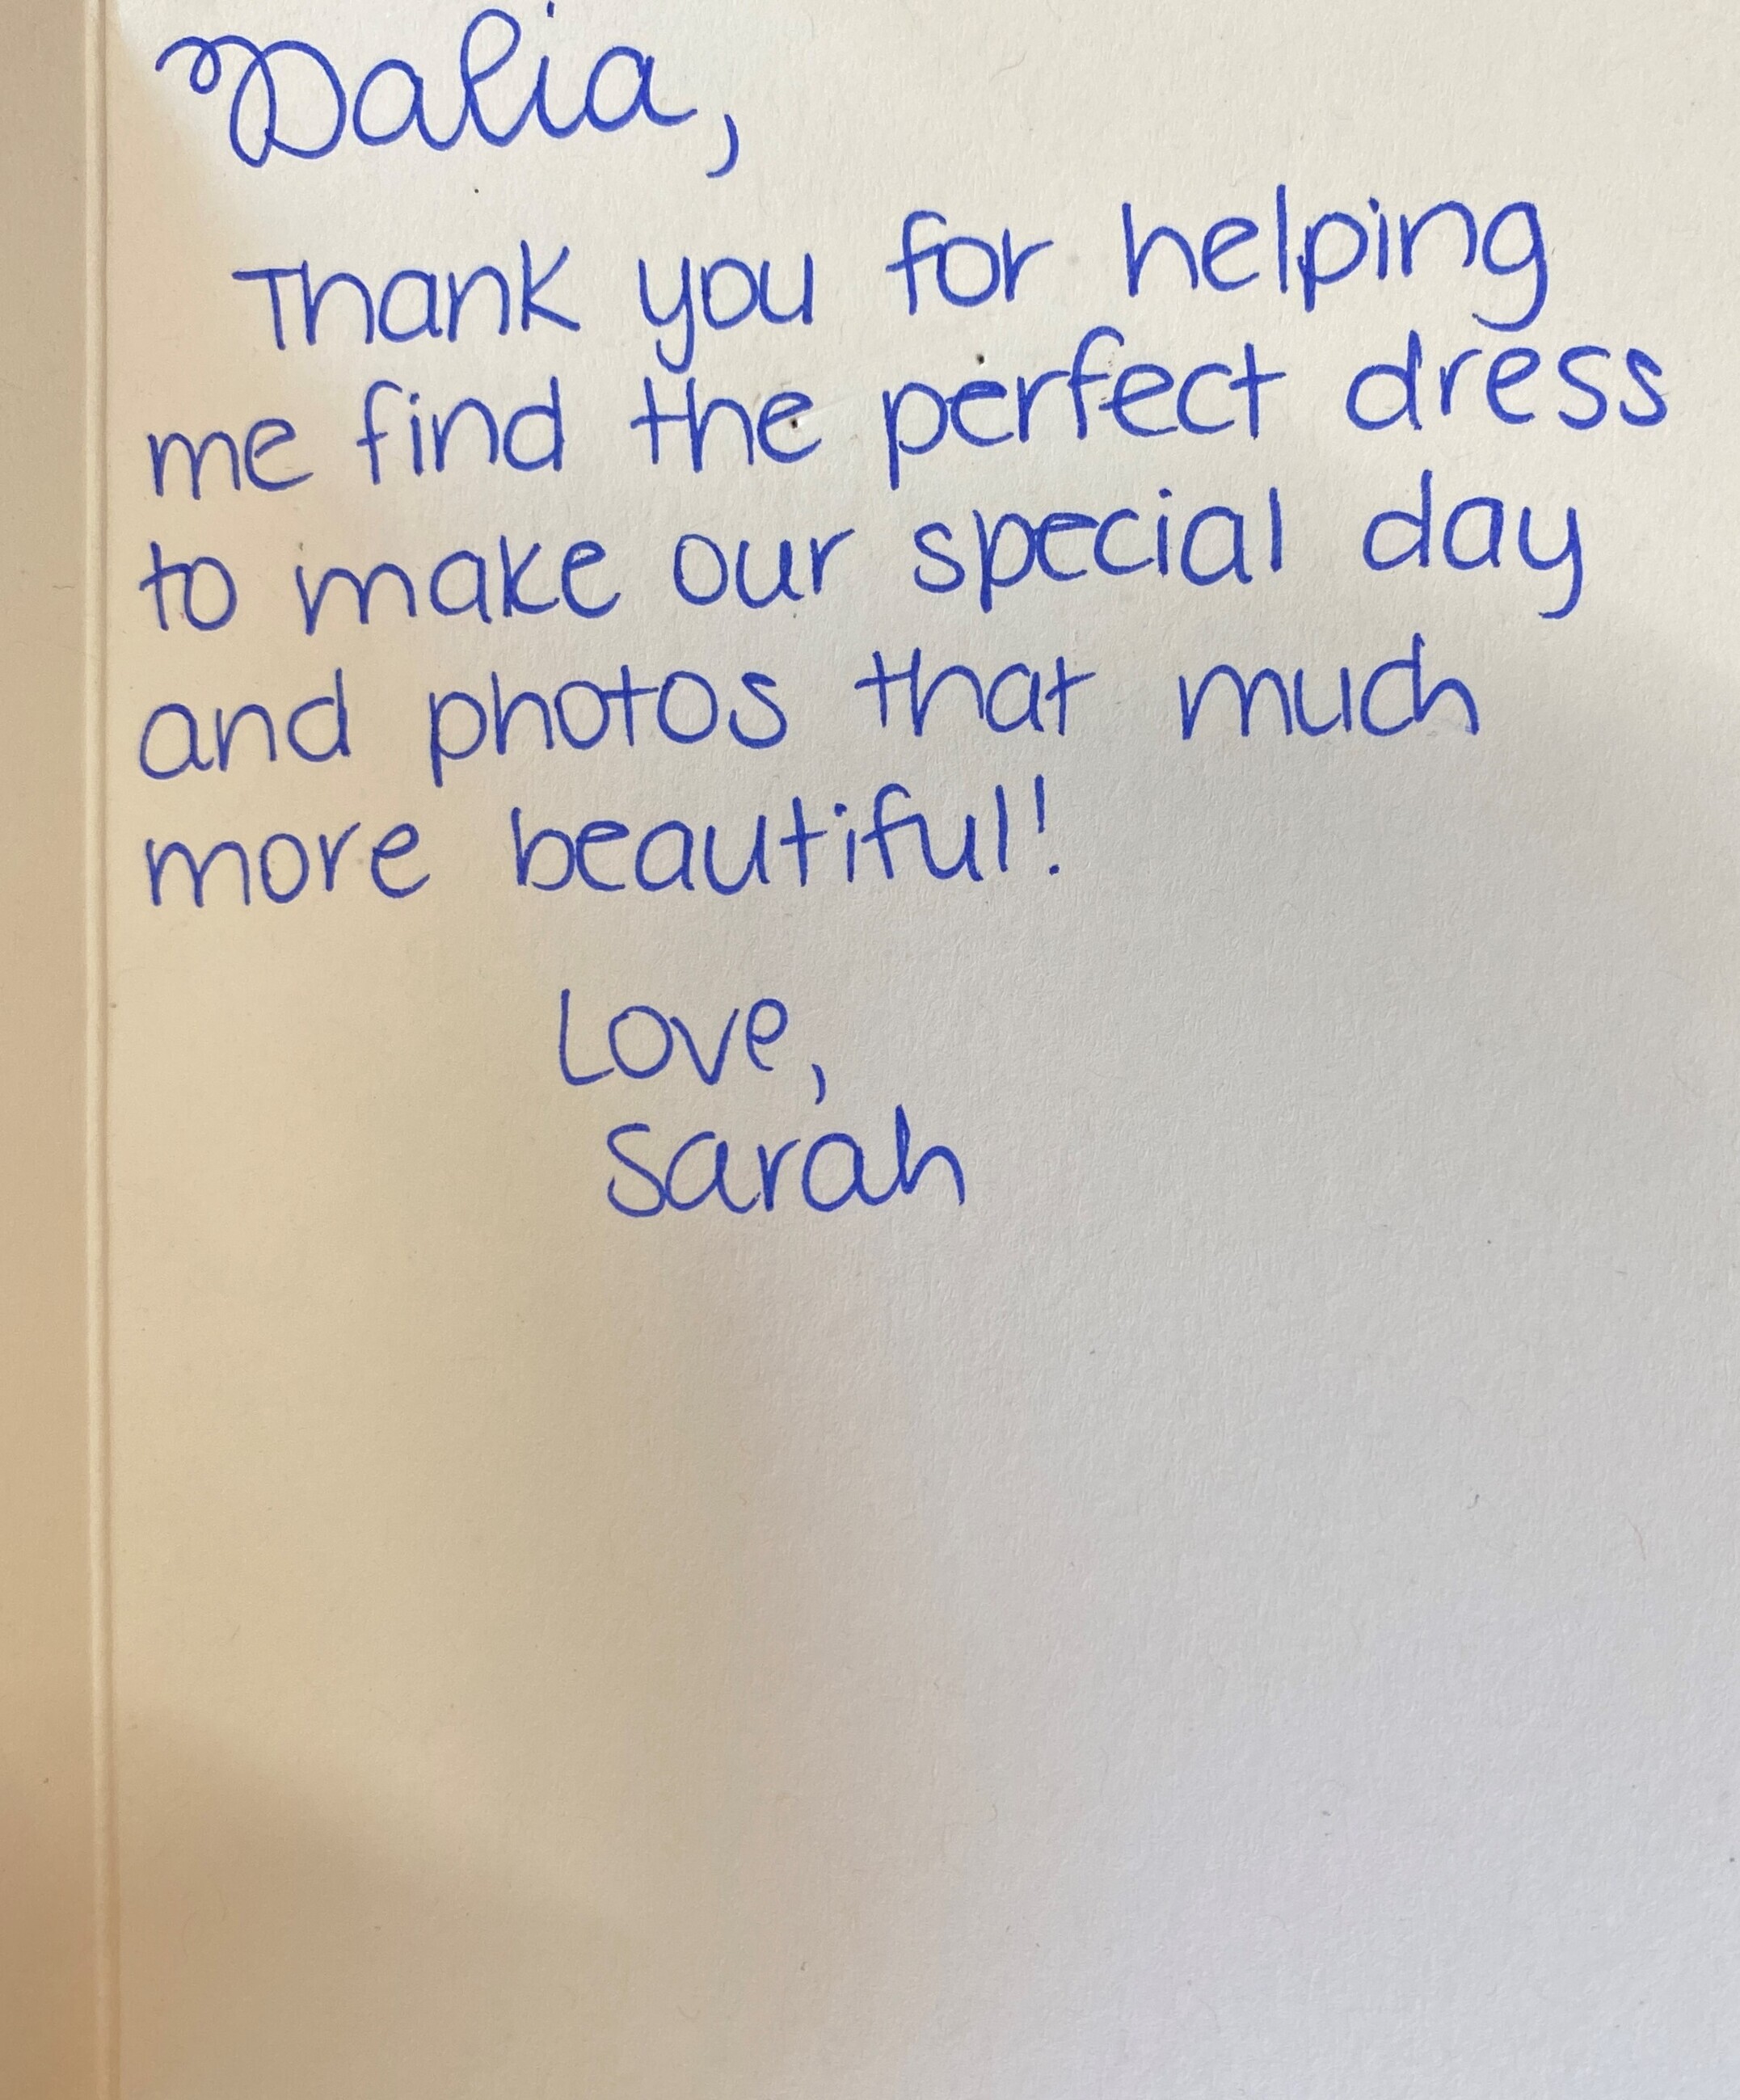 Dalia,
Thank you for helping
me find the perfect dress
to make our special day
and photos that much
more beautiful!
Love,
Sarah